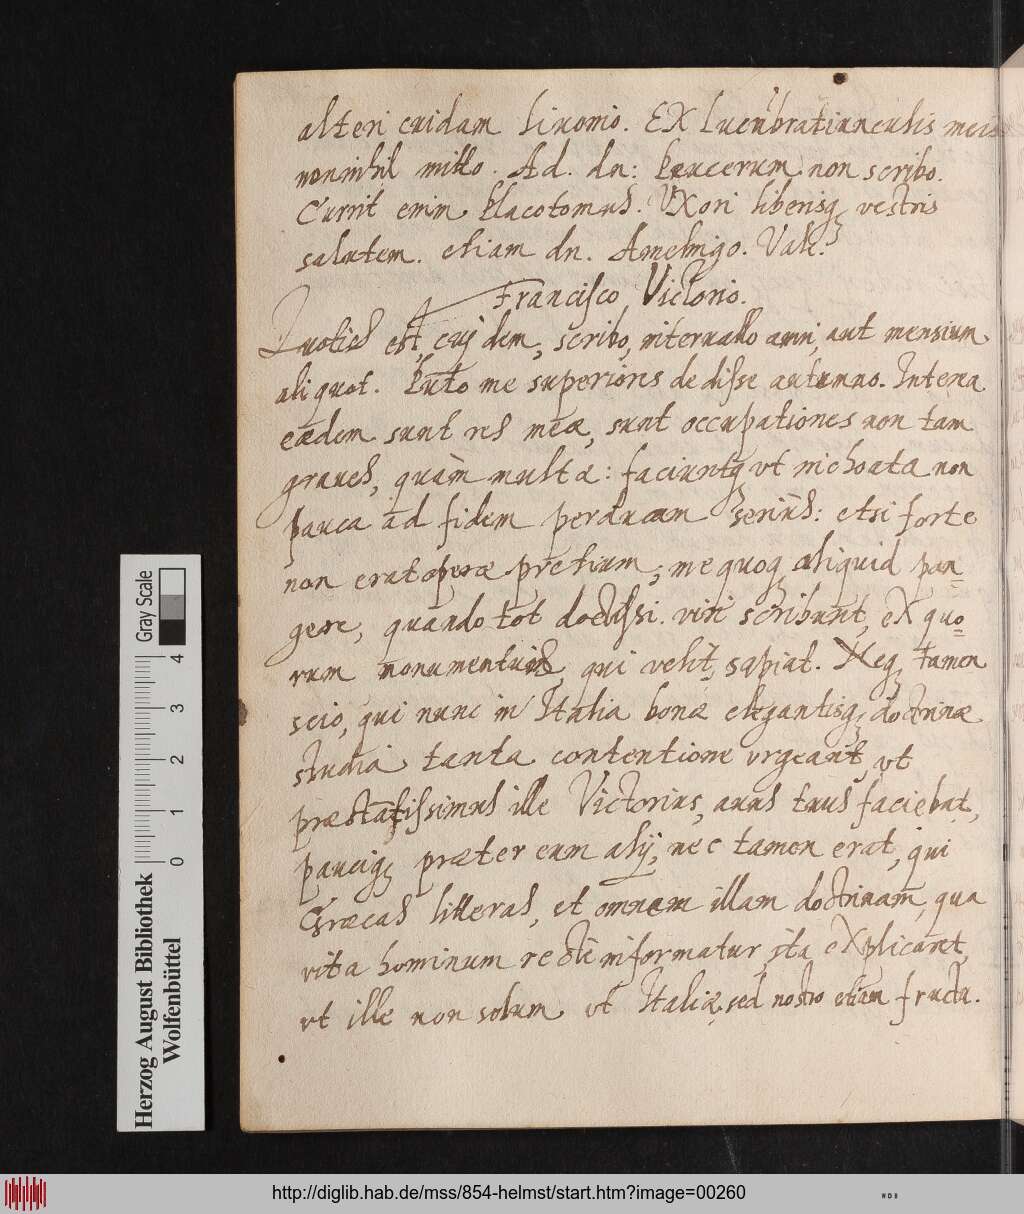 alteri cuidam Livonio. Ex Lucubratiunculis meis
nonnihil mitto. Ad. dn: Peucerum non scribo.
Currit enim Placotomus. Uxori liberisq vestris
salutem. etiam dn. Amelingo. Vale.
Francisco Victorio.
Quoties est, cuj dem, scribo, intervallo anni, aut mensium
aliquot. Puto me superioris dedisse autumno. Interea
eædem sunt res meæ, sunt occupationes non tam
graues, quàm multæ: faciuntq vt inchoata non
pauca ad fidem perducam seriùs: etsi forte
non erat operæ pretium, me quoq aliquid pan=
gere, quando tot doctissi. viri scribunt, ex quo=
rum monumentis, qui velit, sapiat. Neq tamen
scio, qui nunc in Italia bonæ elegantisq doctrinæ
studia tanta contentione vrgeant, vt
præstatissimus ille Victorius, auus tuus faciebat,
pauciq præter eum alij, nec tamen erat, qui
Græcas litteras, et omnem illam doctrinam, qua
vita hominum recte informatur, ita explicaret,
vt ille non solum vt Italiæ, sed nostro etiam fructu.
Gray Scale
0 1 2 3 4
Herzog August Bibliothek
Wolfenbüttel
http://diglib.hab.de/mss/854-helmst/start.htm?image=00260